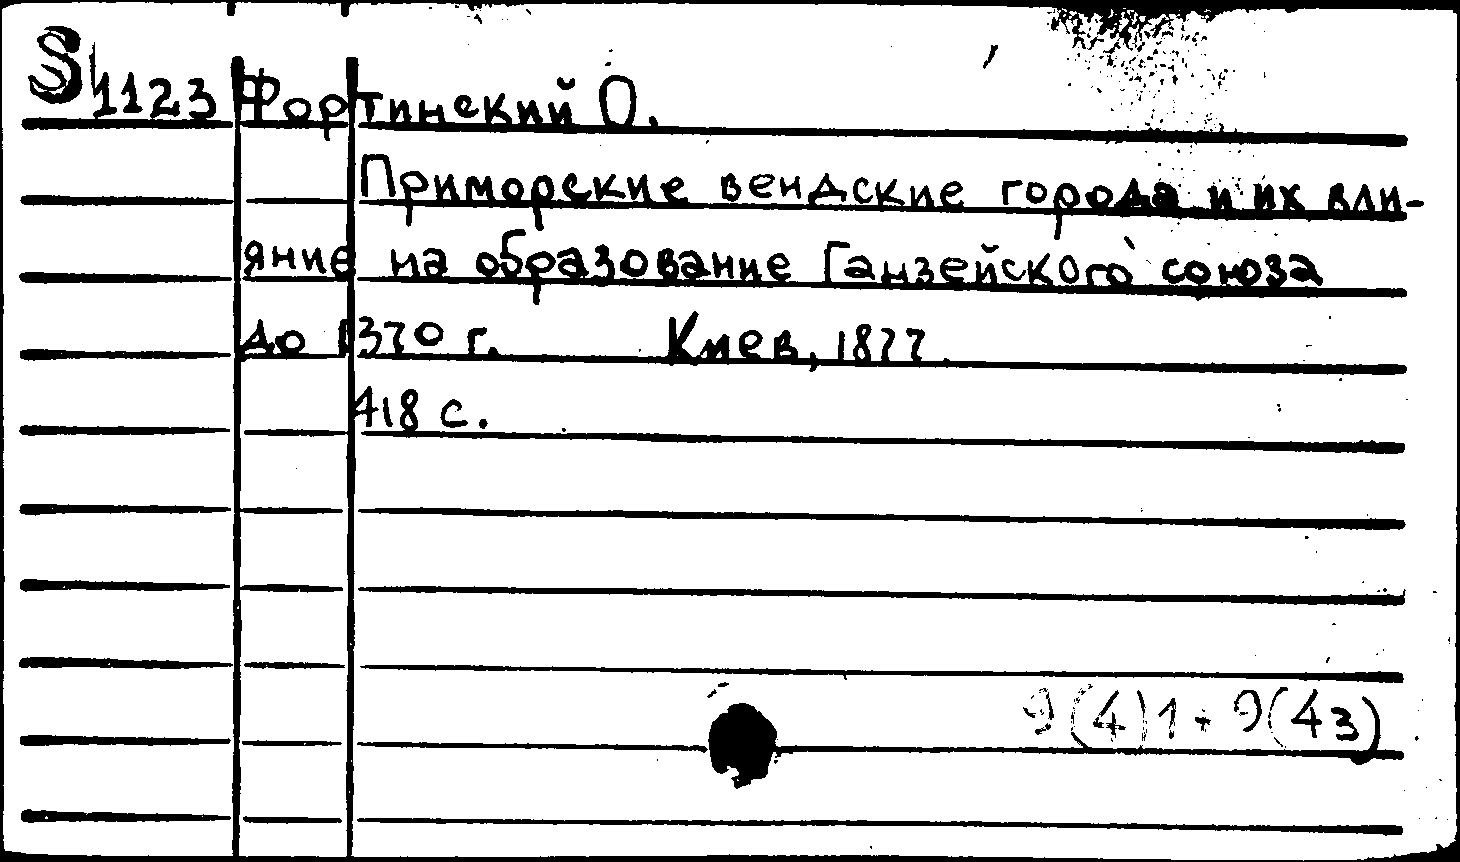 S 1123 Фортинский О.
Приморские вендские города и их вли-
яние на образование Ганзейского союза
до 1370 г. Киев, 1877.
418 с.
9(4)1 + 9(43)